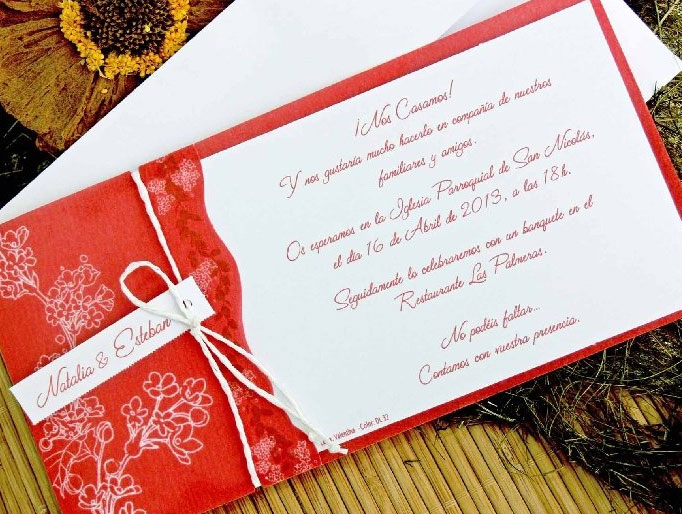 ¡Nos Casamos!
Y nos gustaría mucho hacerlo en compañía de nuestros
familiares y amigos.
Os esperamos en la Iglesia Parroquial de San Nicolás,
el día 16 de Abril de 2013, a las 18h.
Seguidamente lo celebraremos con un banquete en el
Restaurante Las Palmeras.
No podéis faltar...
Contamos con vuestra presencia.
Natalia & Esteban
Valentina - Color: Dt. 32